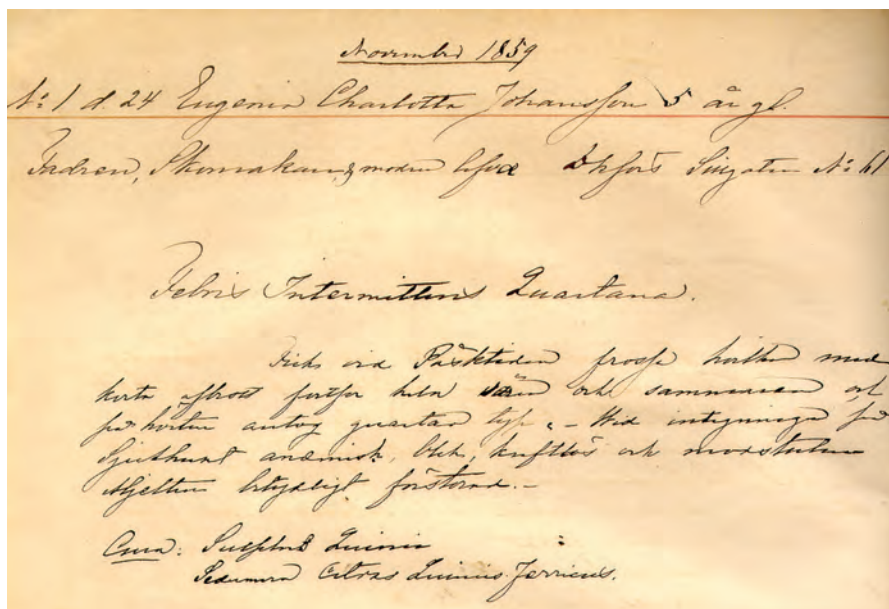 November 1859
No: 1 d. 24 Eugenia Charlotta Johansson 5 år gl.
Fadren, Skomakare, & modren lefva No: 61
Febris Intermittens Quartana.
Fick vid Påsktiden frossa hvilken med
korta afbrott fortfor hela våren och sommaren och
på hösten antog quartan typ. – Vid intagningen på
Sjukhuset anæmisk, blek, kraftlös och
Mjelten betydligt förstorad. –
Cura: Sulphas Quinic
Sedermera Citras Quinic Ferricus.